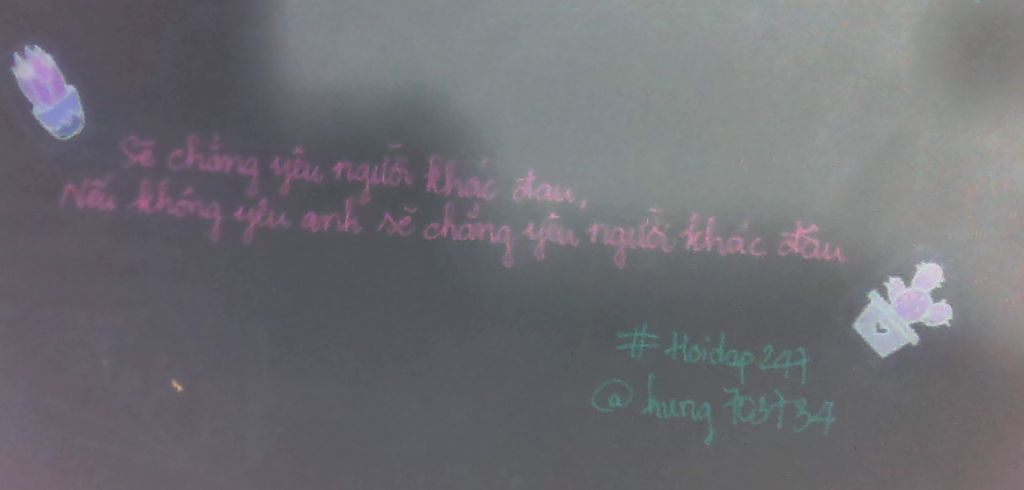 Sẽ chẳng yêu người khác đâu,
Nếu không yêu anh sẽ chẳng yêu người khác đâu
# Hoidap247
@hung703734